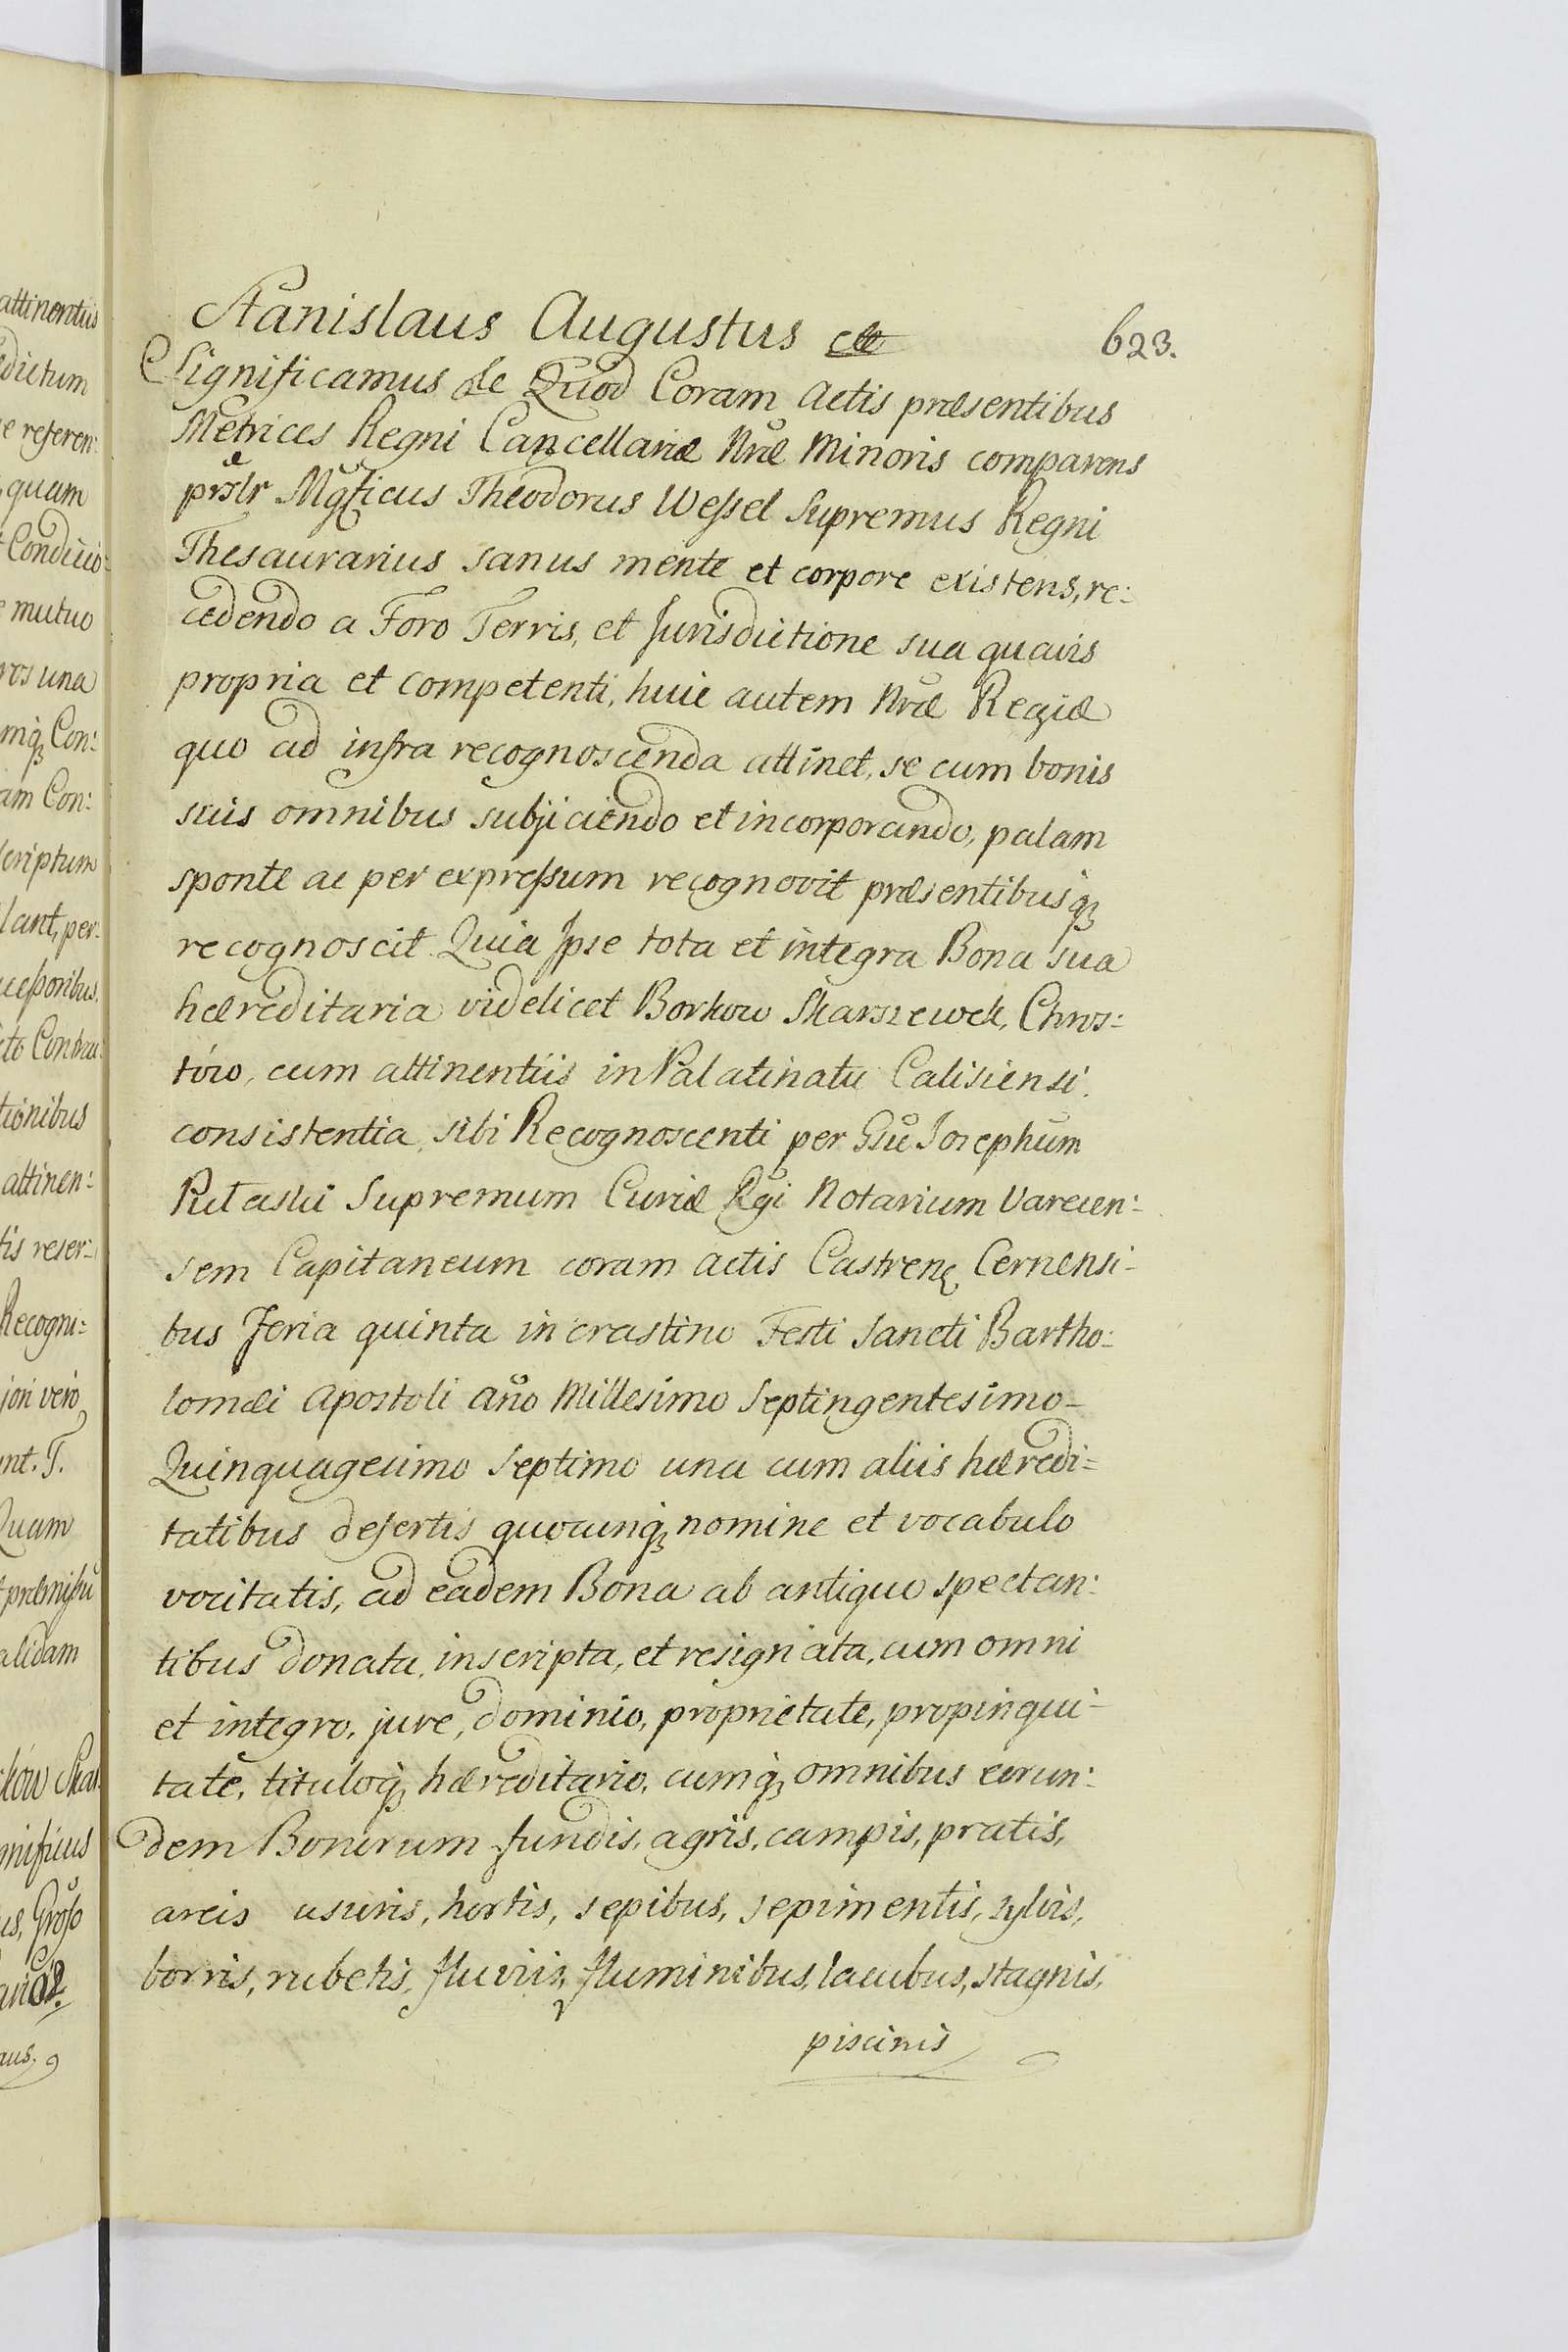 Stanislaus Augustus etc
623.
Significamus &c Quod Coram Actis præsentibus
Metrices Regni Cancellariæ Nræ Minoris comparens
prslr Mgficus Theodorus Wessel Supremus Regni
Thesaurarius sanus mente et corpore existens, re:
cedendo a Foro Terris, et Jurisdictione sua quavis
propria et competenti, huic autem Nræ Regiæ
quo ad infra recognoscenda attinet, se cum bonis
suis omnibus subjiciendo et incorporando, palam
sponte ac per expressum recognovit præsentibusq;
recognoscit Quia Ipse tota et integra Bona sua
hæreditaria videlicet Borkow Skarszewek, Chros:
tów, cum attinentiis in Palatinatu Calisiensi
consistentia, sibi Recognoscenti per Gsu Josephum
Putaski Supremum Curiæ Rgi Notarium Varecen:
sem Capitaneum coram actis Castren Cernensi-
bus Feria quinta in crastino Festi Sancti Bartho:
lomæi Apostoli año Millesimo Septingentesimo-
Quinquagesimo Septimo una cum aliis hæredi=
tatibus desertis quocunq; nomine et vocabulo
vocitatis, ad eadem Bona ab antiquo spectan:
tibus donata, inscripta, et resignata, cum omni
et integro, jure, dominio, proprietate, propinqui-
tate, tituloq; hæreditario, cumq; omnibus eorun:
dem Bonorum fundis, agris, campis, pratis,
areis usuris, hortis, sepibus, sepimentis, sylvis,
borris, rubetis, fluviis, fluminibus, lacubus, stagnis,
piscinis